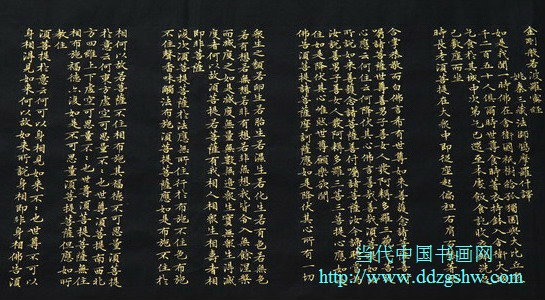 金剛般若波羅蜜經
姚秦三藏法師鳩摩羅什譯
如是我聞一時佛在舍衛國祇樹給孤獨園與大比丘眾
千二百五十人俱爾時世尊食時著衣持鉢入舍衛大城
乞食於其城中次第乞已還至本處飯食訖收衣鉢洗足
已敷座而坐
時長老須菩提在大眾中即從座起偏袒右肩右膝著地
合掌恭敬而白佛言希有世尊如來善護念諸菩薩善付
囑諸菩薩世尊善男子善女人發阿耨多羅三藐三菩提
心應云何住云何降伏其心佛言善哉善哉須菩提如汝
所說如來善護念諸菩薩善付囑諸菩薩汝今諦聽當為
汝說善男子善女人發阿耨多羅三藐三菩提心應如是
住如是降伏其心唯然世尊願樂欲聞
佛告須菩提諸菩薩摩訶薩應如是降伏其心所有一切
眾生之類若卵生若胎生若濕生若化生若有色若無色
若有想若無想若非有想非無想我皆令入無餘涅槃
而滅度之如是滅度無量無數無邊眾生實無眾生得滅
度者何以故須菩提若菩薩有我相人相眾生相壽者相
即非菩薩
復次須菩提菩薩於法應無所住行於布施所謂不住色布施
不住聲香味觸法布施須菩提菩薩應如是布施不住於
相何以故若菩薩不住相布施其福德不可思量須菩提
於意云何東方虛空可思量不不也世尊須菩提南西北
方四維上下虛空可思量不不也世尊須菩提菩薩無住
相布施福德亦復如是不可思量須菩提菩薩但應如所
教住
須菩提於意云何可以身相見如來不不也世尊不可以
身相得見如來何以故如來所說身相即非身相佛告須
当代中国书画网
http://www.ddzgshw.com